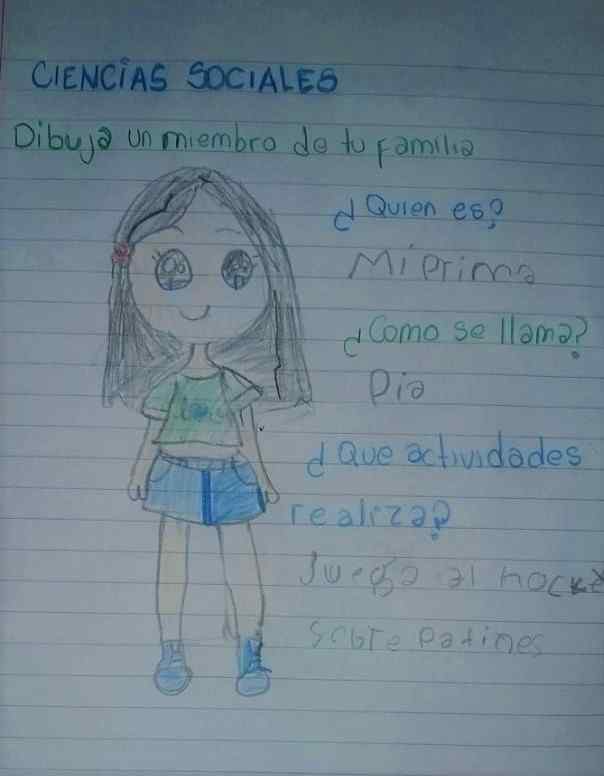 CIENCÍAS SOCIALES
Dibuja un miembro de tu familia
¿Quien es?
Mi prima
¿Como se llama?
Pia
¿Que actividades
realiza?
Juega al hocke
sobre patines